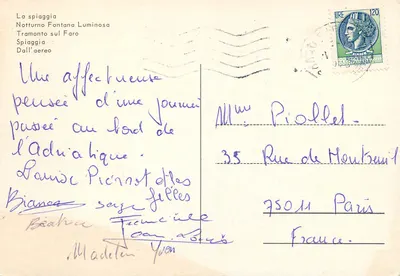 La spiaggia
Notturno Fontana Luminosa
Tramonto sul Faro
Spiaggia
Dall'aereo
120
Une affectueuse
pensée d'une journée
passée au bord de
l'Adriatique.
Pierrot et les
Bianca Serge filles
Béatrice Francine
Jean-Louis
Madelen Yvon
Mme Piollet.
35 Rue de Montreuil
75011 Paris
France.